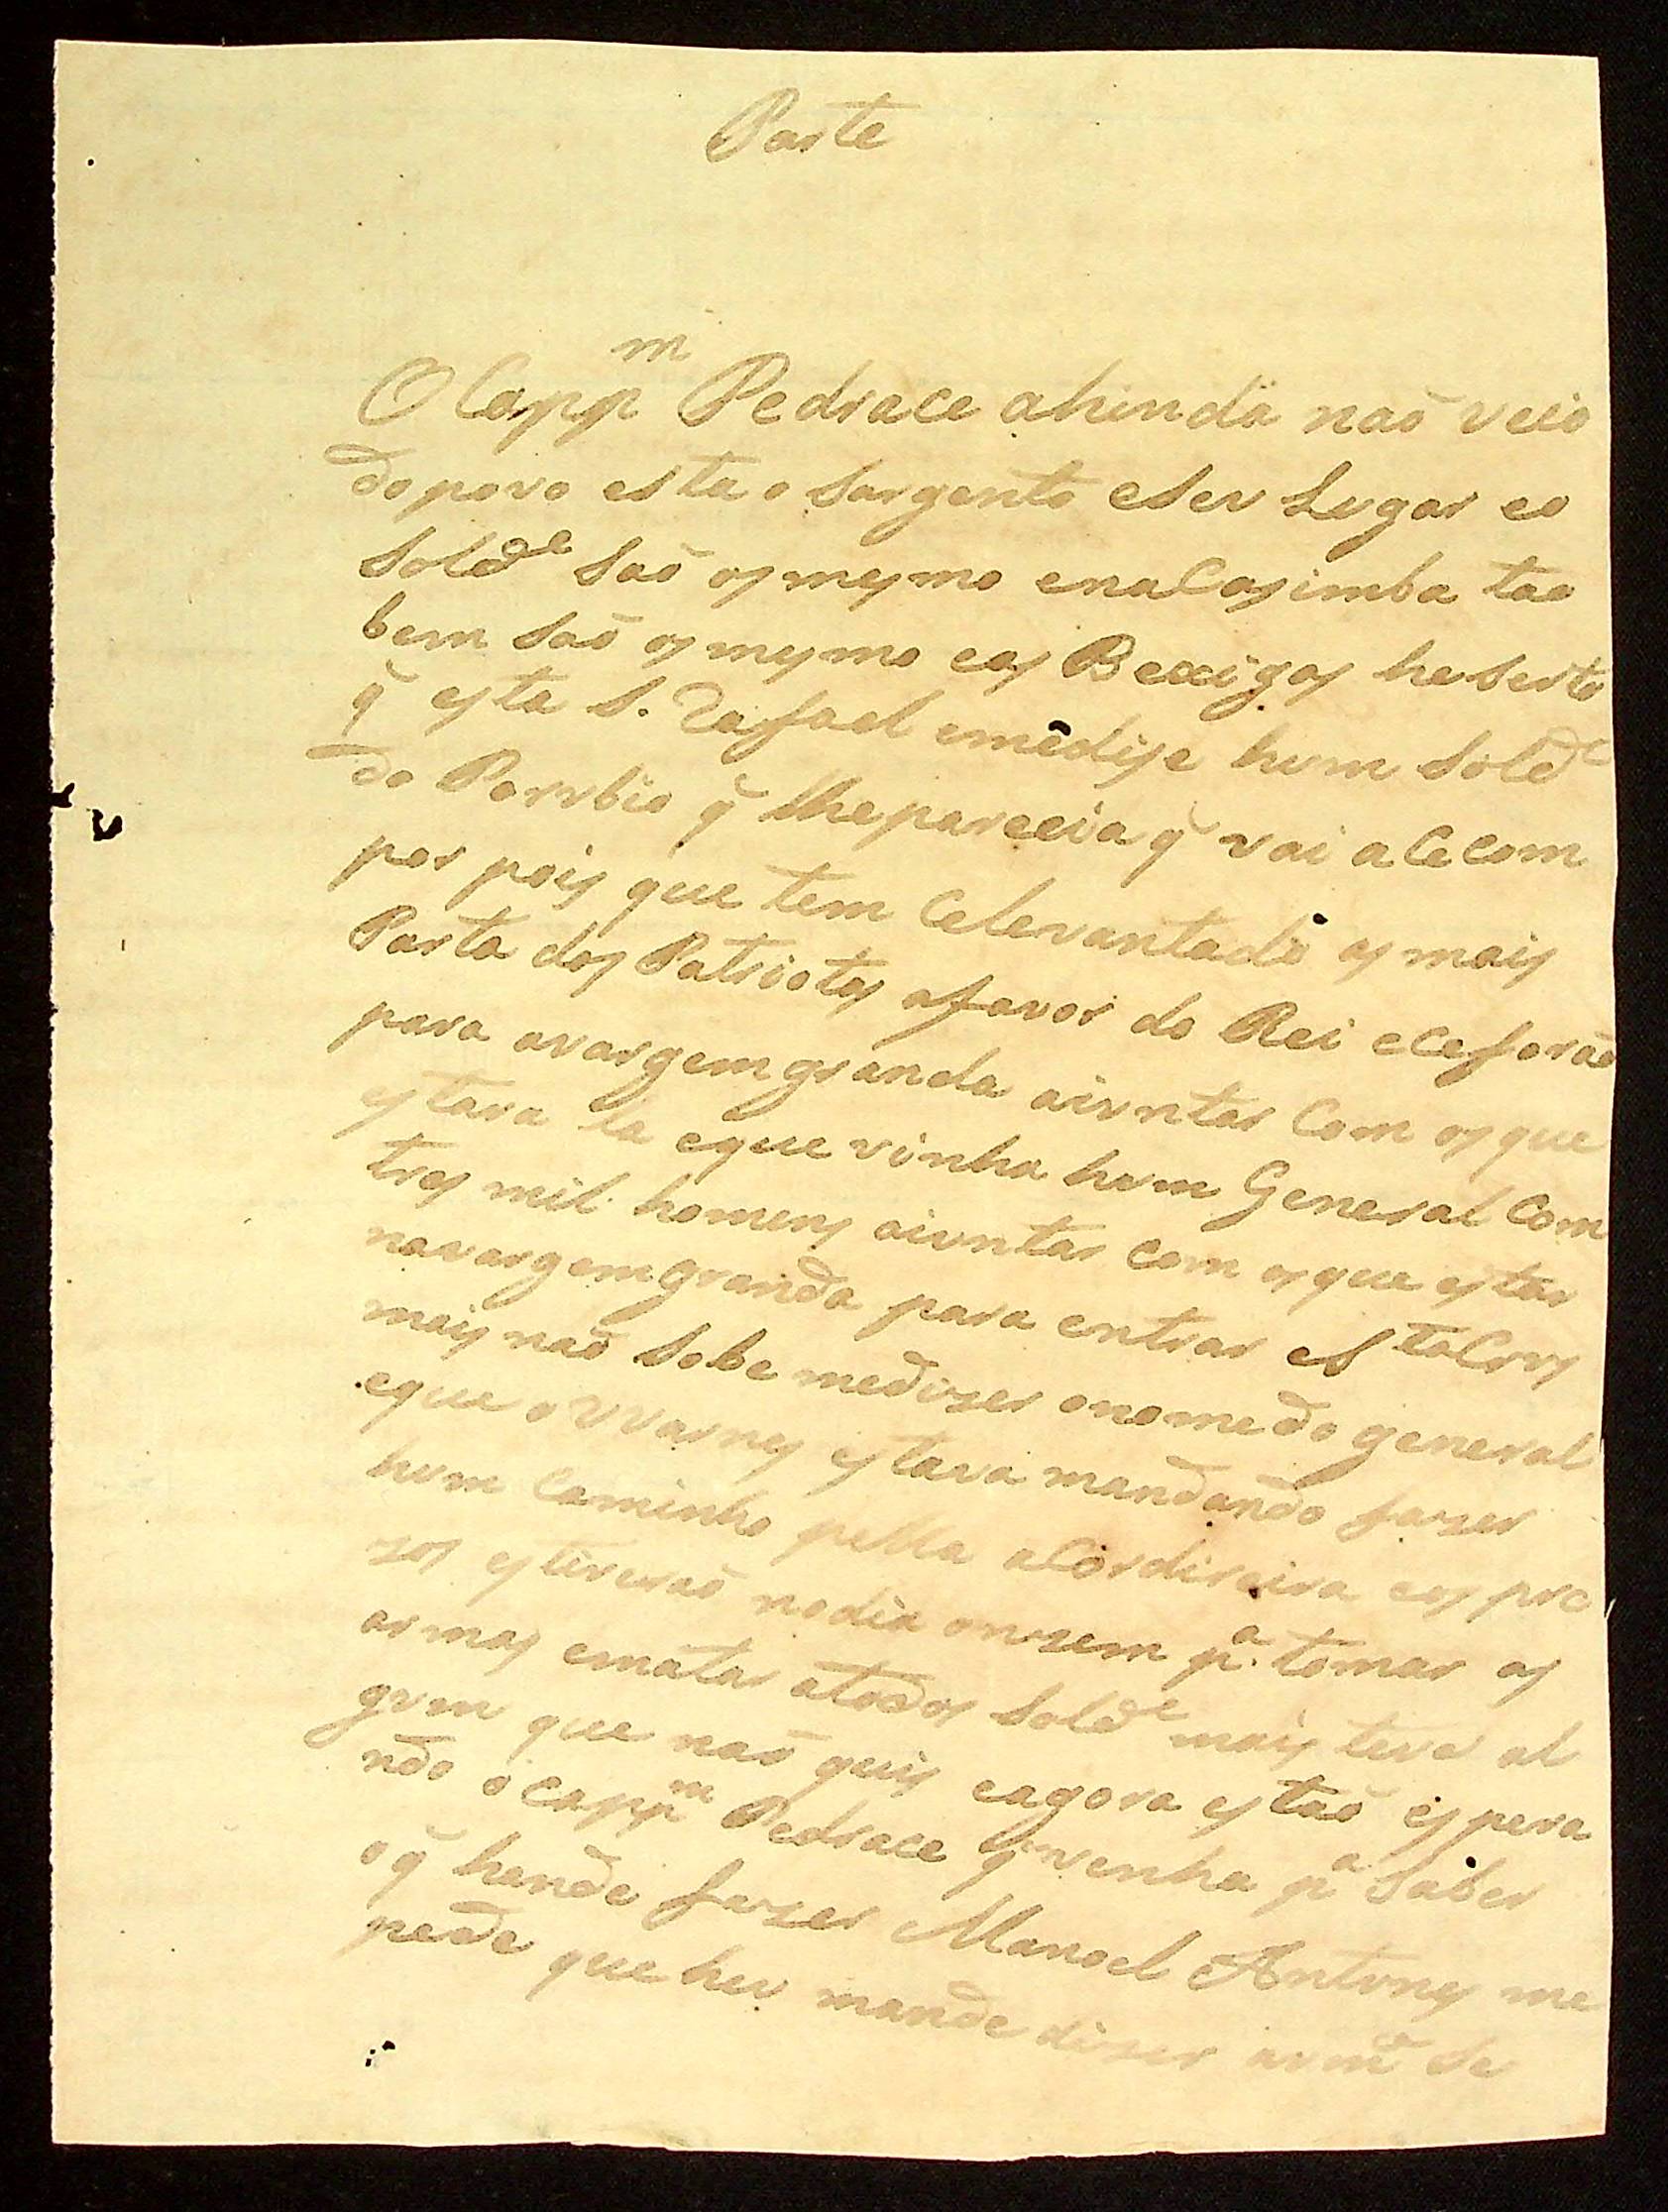 Parte
O Capp.m Pedrace ahinda naõ veio
do povo esta o Sargento e Seu Lugar eo
Sold.e Saõ os mesmo ena Casimba tao
bem Saõ os mesmo eas Bexigas he Serto
q̃ esta S. Rafael emedise hum Sold.e
do q̃ lhe pareceia q̃ vai a Cecom
por pois que tem Celevantado as mais
Parta dos Patriotas afavor do Rei eCeforaõ
para avargem granda aiuntar Com os que
estava la eque vinha hum General Com
tres mil homens aiuntar com os que estar
navargem granda para entrar eS ta Crus
mais naõ Sobe mediser onome do general
eque o estava mandando faser
hum Caminho pella a Cordireira eos pre
zos estiveraõ nodia onzem p.a tomar as
armas ematar atodos Sold.e mais teve al
gum que naõ quis eagora estaõ espera
ndo o capp.m Pedrace q̃ venha p.a Saber
oq̃ hande faser Manoel Antunes me
pede que heu mande diser se